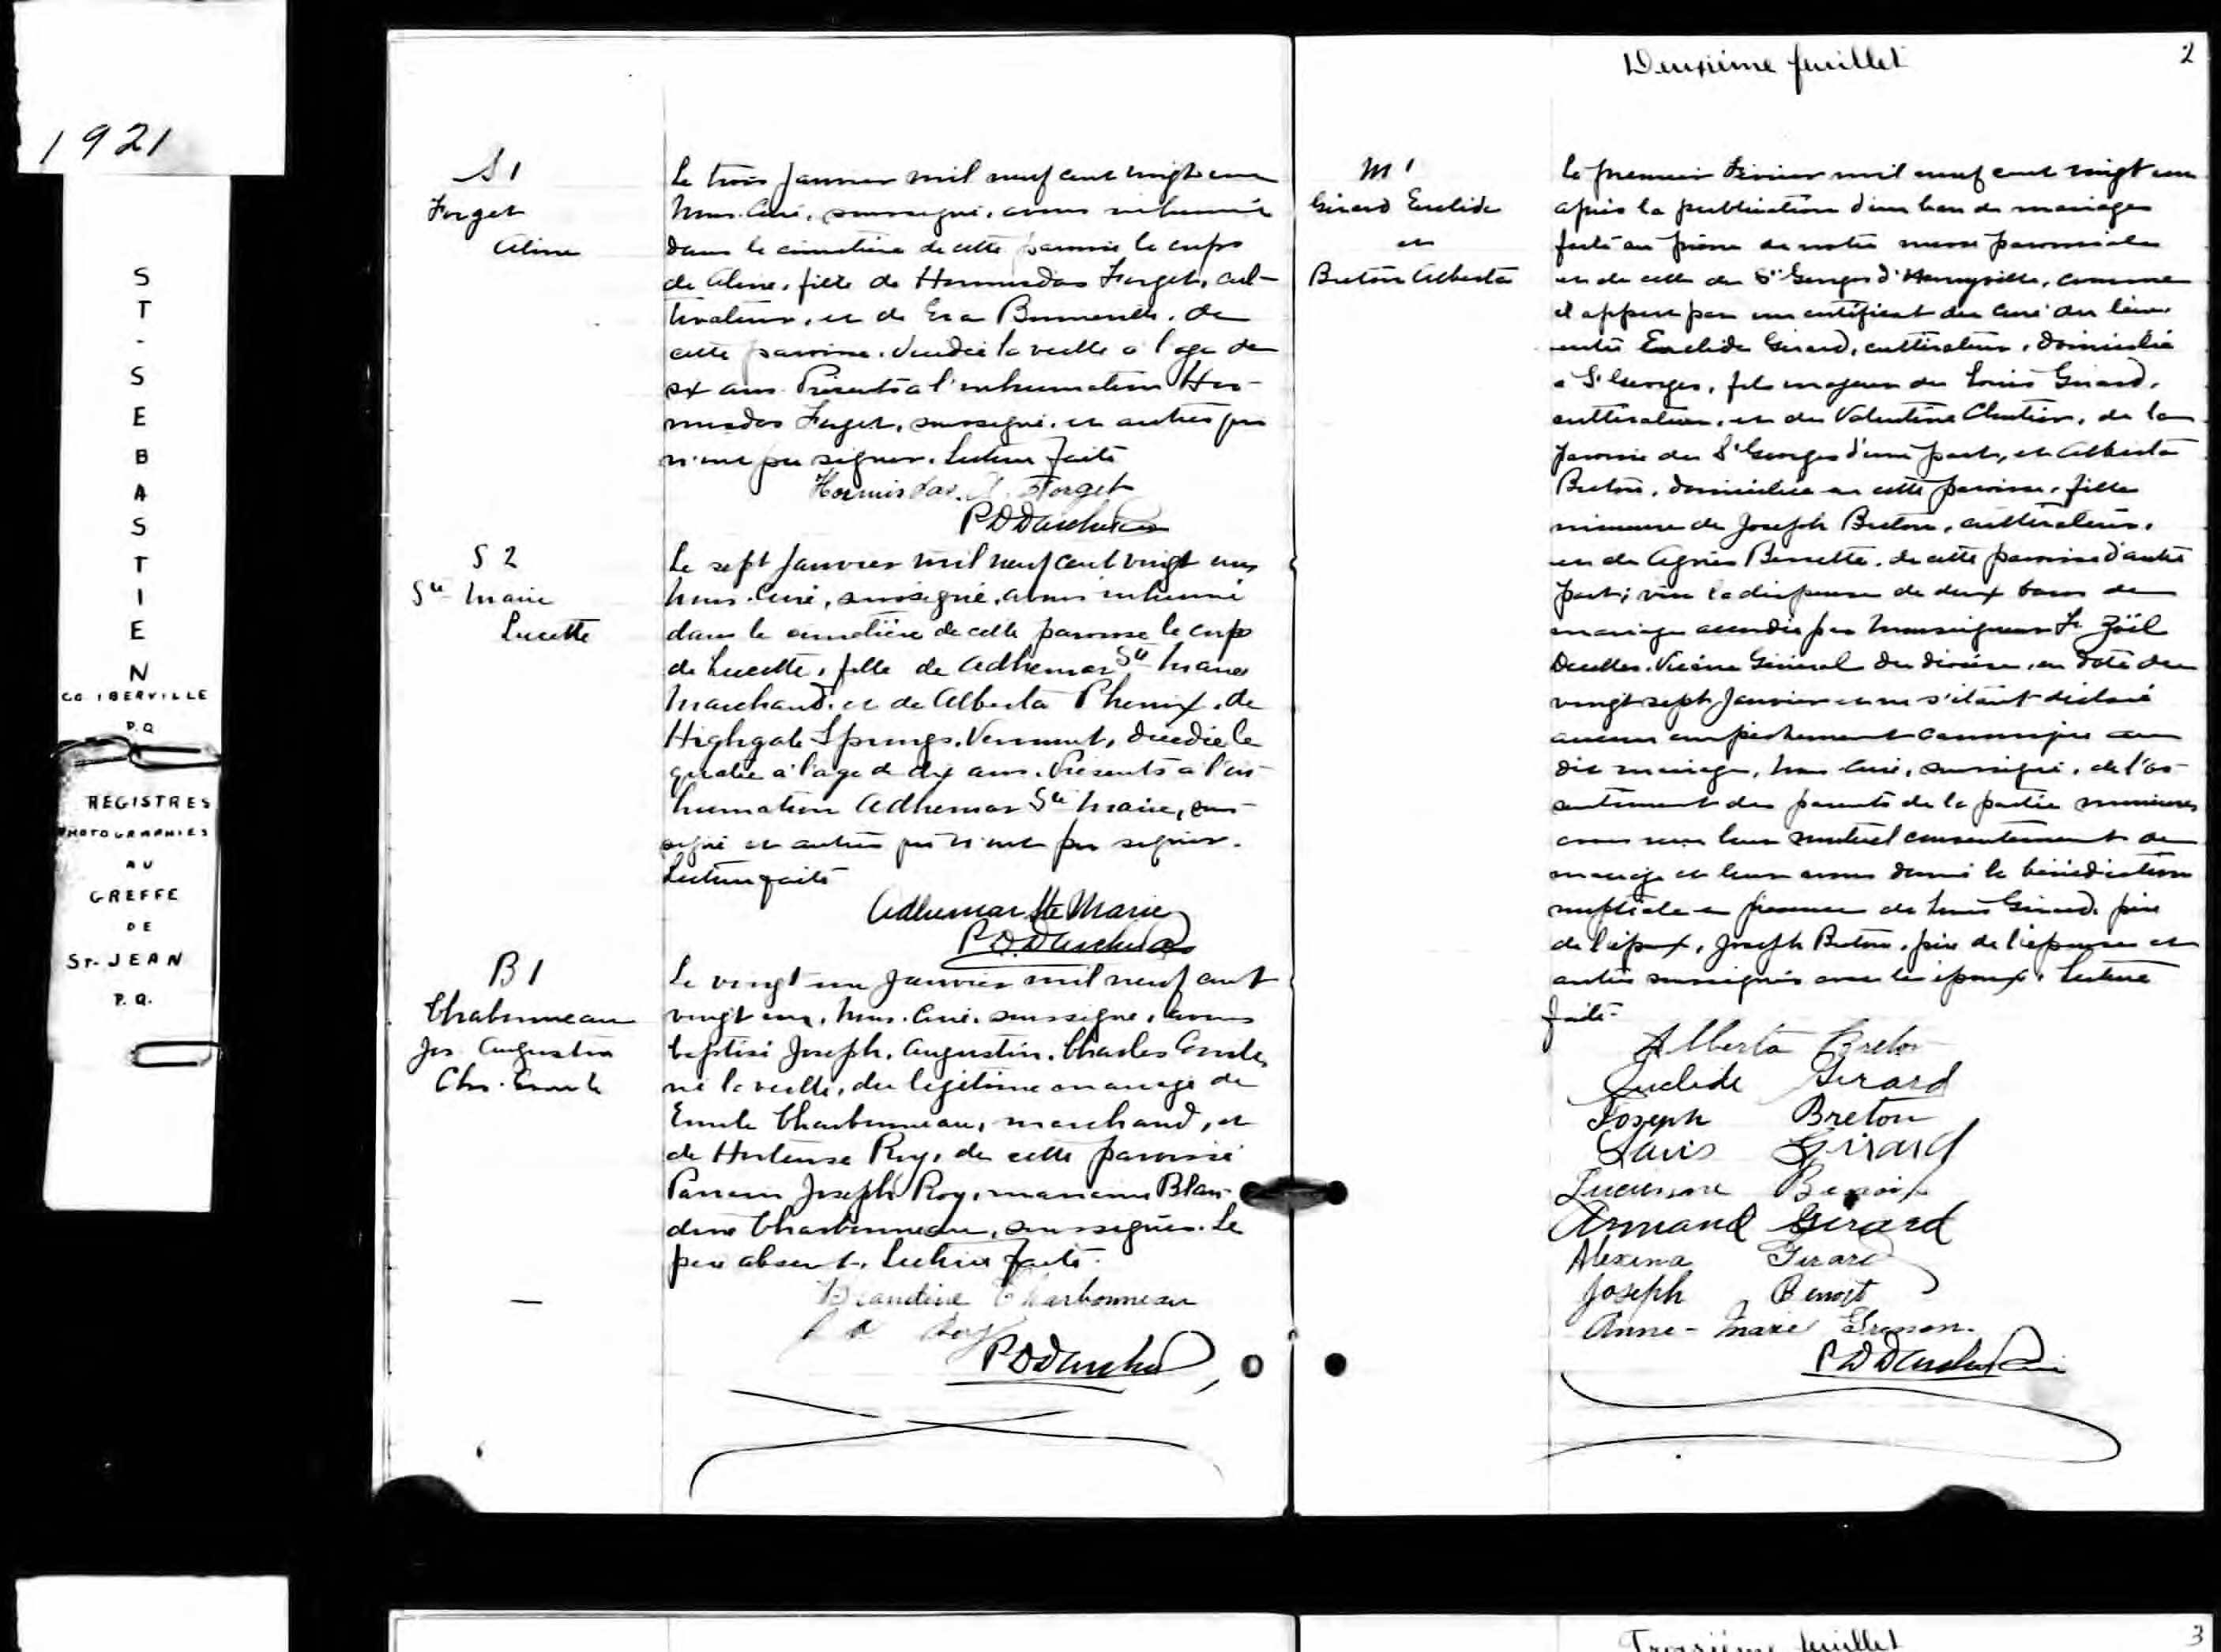 1921
ST-SEBASTIEN
CO. IBERVILLE
P.Q.
REGISTRES
PHOTOGRAPHIES
AU
GREFFE
DE
ST-JEAN
P.Q.
S 1
Forget
Aline
Le trois janvier mil neuf cent vingt un
Nous, Curé, soussigné, avons inhumé
dans le cimetière de cette paroisse le corps
de Aline, fille de Hormisdas Forget, cul-
tivateur, et de Eva, de
cette paroisse, décédée la veille à l'age de
six ans. Présents à l'inhumation Hor-
misdas Forget, soussigné, et autres qui
n'ont pu signer. Lecture faite
Hormisdas Forget
S 2
Ste Marie
Lucette
Le sept janvier mil neuf cent vingt un
Nous, Curé, soussigné, avons inhumé
dans le cimetière de cette paroisse le corps
de Lucette, fille de Adhemar Ste Marie
Marchand, et de Alberta Phenix, de
Highgate Springs, Vermont, décédée le
quatre à l'age de dix ans. Présents à l'in-
humation Adhemar Ste Marie, sous-
signé et autres qui n'ont pu signer.
Lecture faite
Adhemar Ste Marie
B 1
Charbonneau
Jos. Augustin
Chs. Emile
Le vingt un janvier mil neuf cent
vingt un, Nous, Curé, soussigné, avons
baptisé Joseph, Augustin, Charles Emile,
né la veille, du légitime mariage de
Emile Charbonneau, marchand, et
de Hortense Roy, de cette paroisse
Parrain Joseph Roy, marraine Blan-
dine Charbonneau, soussignés. Le
père absent. Lecture faite.
Blandine Charbonneau
Roy
Deuxième feuillet
2
M 1
Girard Euclide
et
Breton Alberta
Le premier Février mil neuf cent vingt un
après la publication d'un ban de mariage
faite au prône de notre messe paroissiale
et de celle de St Georges d'Henryville, comme
il appert par un certificat du curé du lieu
entre Euclide Girard, cultivateur, domicilié
à St Georges, fils majeur de Louis Girard,
cultivateur, et de Valentine, de la
paroisse de St Georges d'une part, et Alberta
Breton, domiciliée en cette paroisse, fille
mineure de Joseph Breton, cultivateur,
et de Agnès Bessette, de cette paroisse d'autre
part; vu la dispense de deux bans de
mariage accordée par Monseigneur
Decelles, Vicaire Général du diocèse, en date du
vingt sept janvier et ne s'étant déclaré
aucun empêchement canonique au
dit mariage, Nous Curé, soussigné, de l'as-
sentiment des parents de la partie mineure
avons reçu leur mutuel consentement de
mariage et leur avons donné la bénédiction
nuptiale en présence de Louis Girard, père
de l'époux, Joseph Breton, père de l'épouse et
autres soussignés avec les époux. Lecture
faite.
Alberta Breton
Euclide Girard
Joseph Breton
Louis Girard
Benoit
Armand Girard
Alexina Girard
Joseph Benoit
Anne-Marie
Troisième feuillet
3